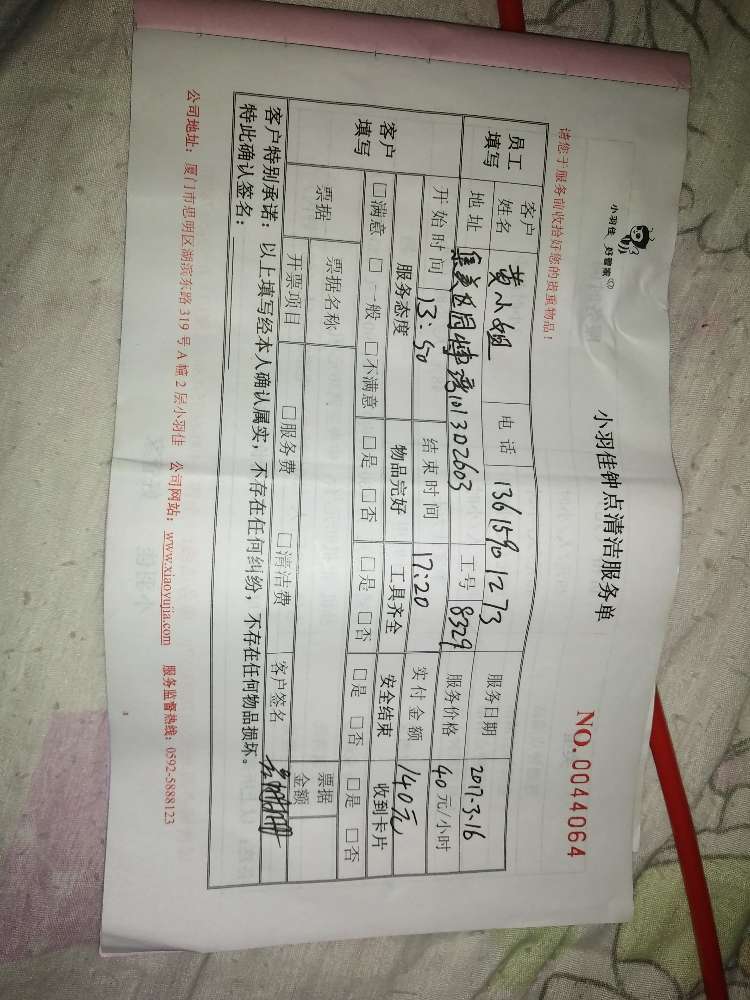 小羽佳 好管家
小羽佳钟点清洁服务单
NO.0044064
请您于服务前收拾好您的贵重物品！
员工填写 客户姓名 黄小姐 电话 13615901273 服务日期 2017-3-16
地址 集美 302603 工号 8329 服务价格 40元/小时
开始时间 13:50 结束时间 17:20 实付金额 140元
客户填写 服务态度 物品完好 工具齐全 安全结束 收到卡片
□满意 □一般 □不满意 □是 □否 □是 □否 □是 □否 □是 □否
票据 票据名称 票据金额
开票项目 □服务费 □清洁费 客户签名
客户特别承诺：以上填写经本人确认属实，不存在任何纠纷，不存在任何物品损坏。
特此确认签名：
公司地址：厦门市思明区湖滨东路319号A幢2层小羽佳 公司网站：www.xiaoyujia.com 服务监督热线：0592-5888123